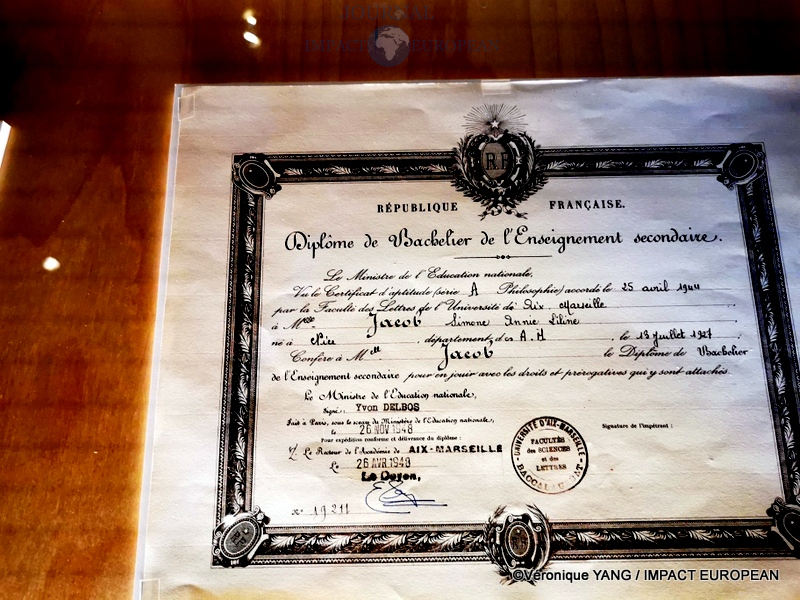 JOURNAL
IMPACT EUROPEAN
RF
RÉPUBLIQUE FRANÇAISE.
Diplôme de Bachelier de l'Enseignement secondaire.
Le Ministre de l'Education nationale,
Vu le Certificat d'aptitude (série A Philosophie) accordé le 25 avril 1944
par la Faculté des Lettres de l'Université de Aix-Marseille
à Mlle Jacob Simone Annie Liline
né à Nice, département des A.M, le 13 juillet 1927
Confère à Melle Jacob le Diplôme de Bachelier
de l'Enseignement secondaire pour en jouir avec les droits et prérogatives qui y sont attachés.
Le Ministre de l'Education nationale,
Signé : Yvon DELBOS
Fait à Paris, sous le sceau du Ministère de l'Education nationale,
le 26 NOV 1948
Pour expédition conforme et délivrance du diplôme :
Signature de l'Impétrant :
Le Recteur de l'Académie de AIX-MARSEILLE
Le 26 AVR 1949
Le Doyen,
UNIVERSITÉ D'AIX-MARSEILLE
FACULTÉS
des SCIENCES
et des
LETTRES
BACCALAURÉAT
N° 19211
©Véronique YANG / IMPACT EUROPEAN